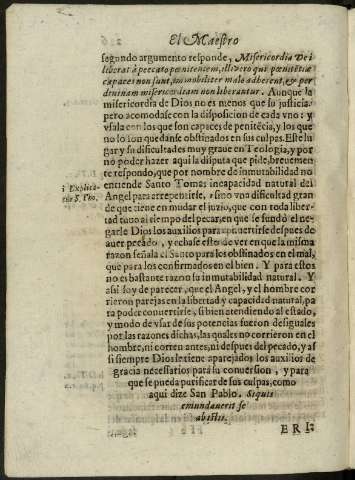 El Maestro
segundo argumento responde, Misericordia Dei
liberat à peccato pœnitentem, illi vero qui pœnitētiæ
capaces non sunt, immobiliter male adherent, & per
diuinam misericordiam non liberantur. Aunque la
misericordia de Dios no es menos que su justicia:
pero acomodase con la disposicion de cada vno: y
vsala con los que son capaces de penitēcia, y los que
no lo son quedanse obstinados en sus culpas. Este lu
gar y su dificultad es muy graue en Teologia, y por
no poder hazer aqui la disputa que pide, breuemen
te respondo, que por nombre de inmutabilidad no
entiende Santo Tomas incapacidad natural del
i Explica-
tur S. Tho.
Angel para arrepentirse, sino vna dificultad gran
de que tiene en mudar el juizio, que con toda liber-
tad tuuo al tiempo del pecar, en que se fundò el ne-
garle Dios los auxilios para conuertirse despues de
auer pecado, y echase esto de ver en que la misma
razon señala el Santo para los obstinados en el mal,
que para los confirmados en el bien. Y para estos
no es bastante razon la inmutabilidad natural. Y
assi soy de parecer, que el Angel, y el hombre cor
rieron parejas en la libertad y capacidad natural, pa
ra poder conuertirse, si bien atendiendo al estado,
y modo de vsar de sus potencias fueron desiguales
por las razones dichas, las quales no corrieron en el
hombre, ni corren antes, ni despues del pecado, y assi
si siempre Dios le tiene aparejados los auxilios de
gracia necessarios para su conuersion, y para
que se pueda purificar de sus culpas, como
aqui dize San Pablo. Siquis
emundauerit se
ab istis.
ERI-